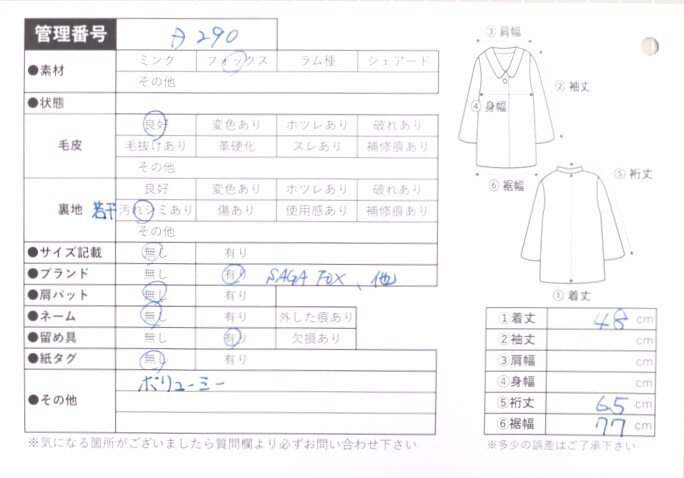 管理番号 A 290
●素材 ミンク フォックス ラム種 シェアード
その他
●状態
毛皮 良好 変色あり ホツレあり 破れあり
毛抜けあり 革硬化 スレあり 補修痕あり
その他
裏地 良好 変色あり ホツレあり 破れあり
若干 汚れシミあり 傷あり 使用感あり 補修痕あり
その他
●サイズ記載 無し 有り
●ブランド 無し 有り SAGA FOX、他
●肩パット 無し 有り
●ネーム 無し 有り 外した痕あり
●留め具 無し 有り 欠損あり
●紙タグ 無し 有り
●その他 ボリューミー
※気になる箇所がございましたら質問欄より必ずお問い合わせ下さい
③肩幅
②袖丈
④身幅
⑥裾幅
⑤裄丈
①着丈
①着丈 48 cm
②袖丈 cm
③肩幅 cm
④身幅 cm
⑤裄丈 65 cm
⑥裾幅 77 cm
※多少の誤差はご了承下さい